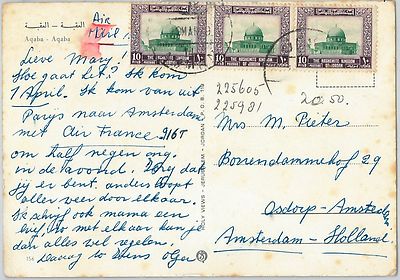 العقبة - العقبة
Aqaba - Aqaba
Air
Mail
10 THE HASHEMITE KINGDOM OF JORDAN ١٠
10 THE HASHEMITE KINGDOM OF JORDAN ١٠
10 THE HASHEMITE KINGDOM OF JORDAN ١٠
Lieve Mary!
Hoe gaat het? Ik kom
1 April. Ik kom van uit
Parys naar Amsterdam
met Air France 916T
om half negen
in de avond. Zorg dat
jy er bent, anders loopt
alles weer door elkaar.
Ik schryf ook mama een
brief, zo met elkaar kun je
dan alles wel regelen.
Daag tot ziens
156
HOLY VIEWS - JERUSALEM - JORDAN P.O.B. 19
225605
225981
20.50.
Mrs M. Pieter
Borrendammehof 29
Osdorp - Amsterdam
Amsterdam - Holland